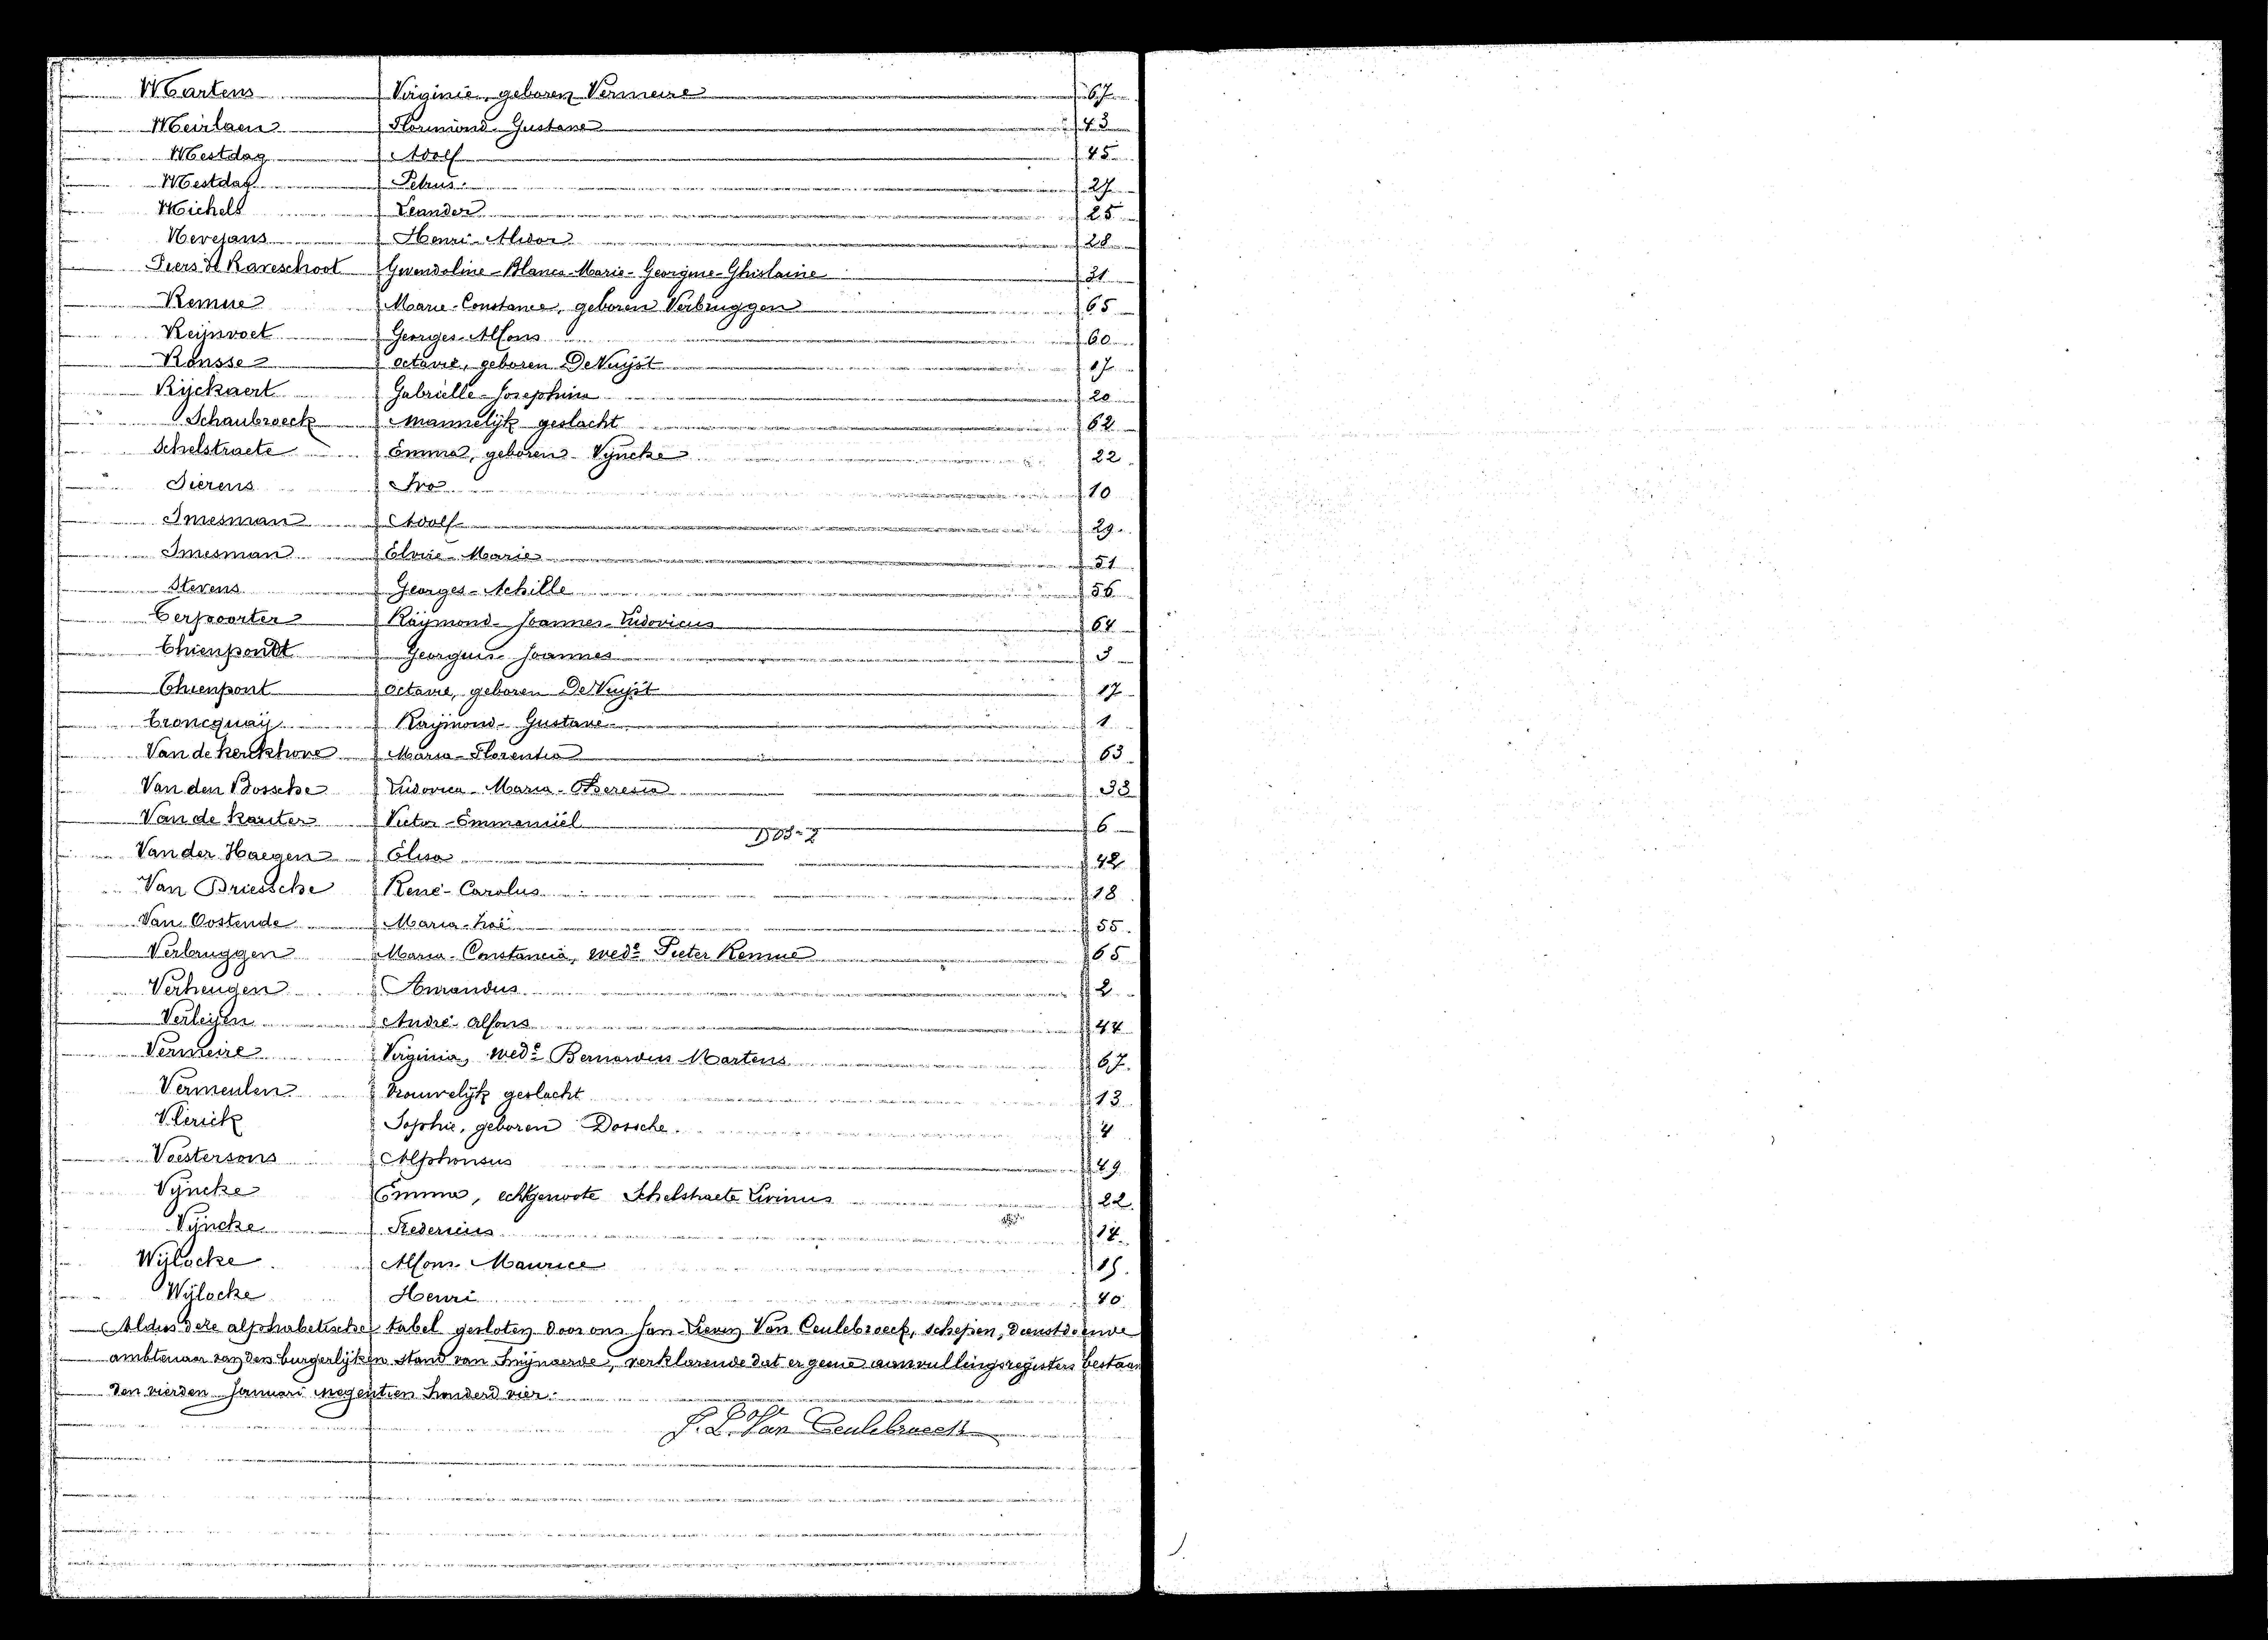 Martens Virginie, geboren Vermeire 67
Meirlaen Florimond Gustave 43
Mestdag Adolf 45
Mestdag Petrus 27
Michels Leander 25
Nevejans Henri Alidor 28
Piers de Raveschoot Gwendoline-Blanca-Marie-Georgine-Ghislaine 31
Remue Marie-Constance, geboren Verbruggen 65
Reijnvoet Georges-Alfons 60
Ronsse Octavie, geboren De Vuyst 17
Rijckaert Gabrielle-Josephina 20
Schaubroeck Mannelijk geslacht 62
Schelstraete Emma, geboren Vijncke 22
Sierens Ivo 10
Smesman Adolf 29
Smesman Elvire-Marie 51
Stevens Georges-Achille 56
Terpoorter Raijmond-Joannes-Ludovicus 64
Thienpondt Georgius-Joannes 5
Thienpont Octavie, geboren De Vuyst 17
Troncquaij Raijmond-Gustave 1
Van de Kerckhove Maria-Florentia 63
Van den Bossche Ludovica-Maria-Theresia 33
Van de Kauter Victor-Emmanuel 6
Van der Haegen Elisa 42
Van Driessche René-Carolus 18
Van Oostende Maria-Zoé 55
Verbruggen Maria-Constancia, wede Pieter Remue 65
Verheugen Amandus 2
Verleijen André-Alfons 44
Vermeire Virginia, wede Bernardus Martens 67
Vermeulen Vrouwelijk geslacht 13
Vlerick Sophie, geboren Dossche 4
Voestersons Alphonsus 49
Vijncke Emma, echtgenoote Schelstraete Livinus 22
Vijncke Fredericus 14
Wijlocke Alfons-Maurice 19
Wijlocke Henri 40
Aldus deze alphabetische tabel gesloten door ons Jan-Lieven Van Ceulebroeck, schepen, dienstdoende
ambtenaar van den burgerlijken stand van Swijnaerde, verklarende dat er geene aanvullingsregisters bestaan
den vierden Januari negentien honderd vier.
J. L. Van Ceulebroeck